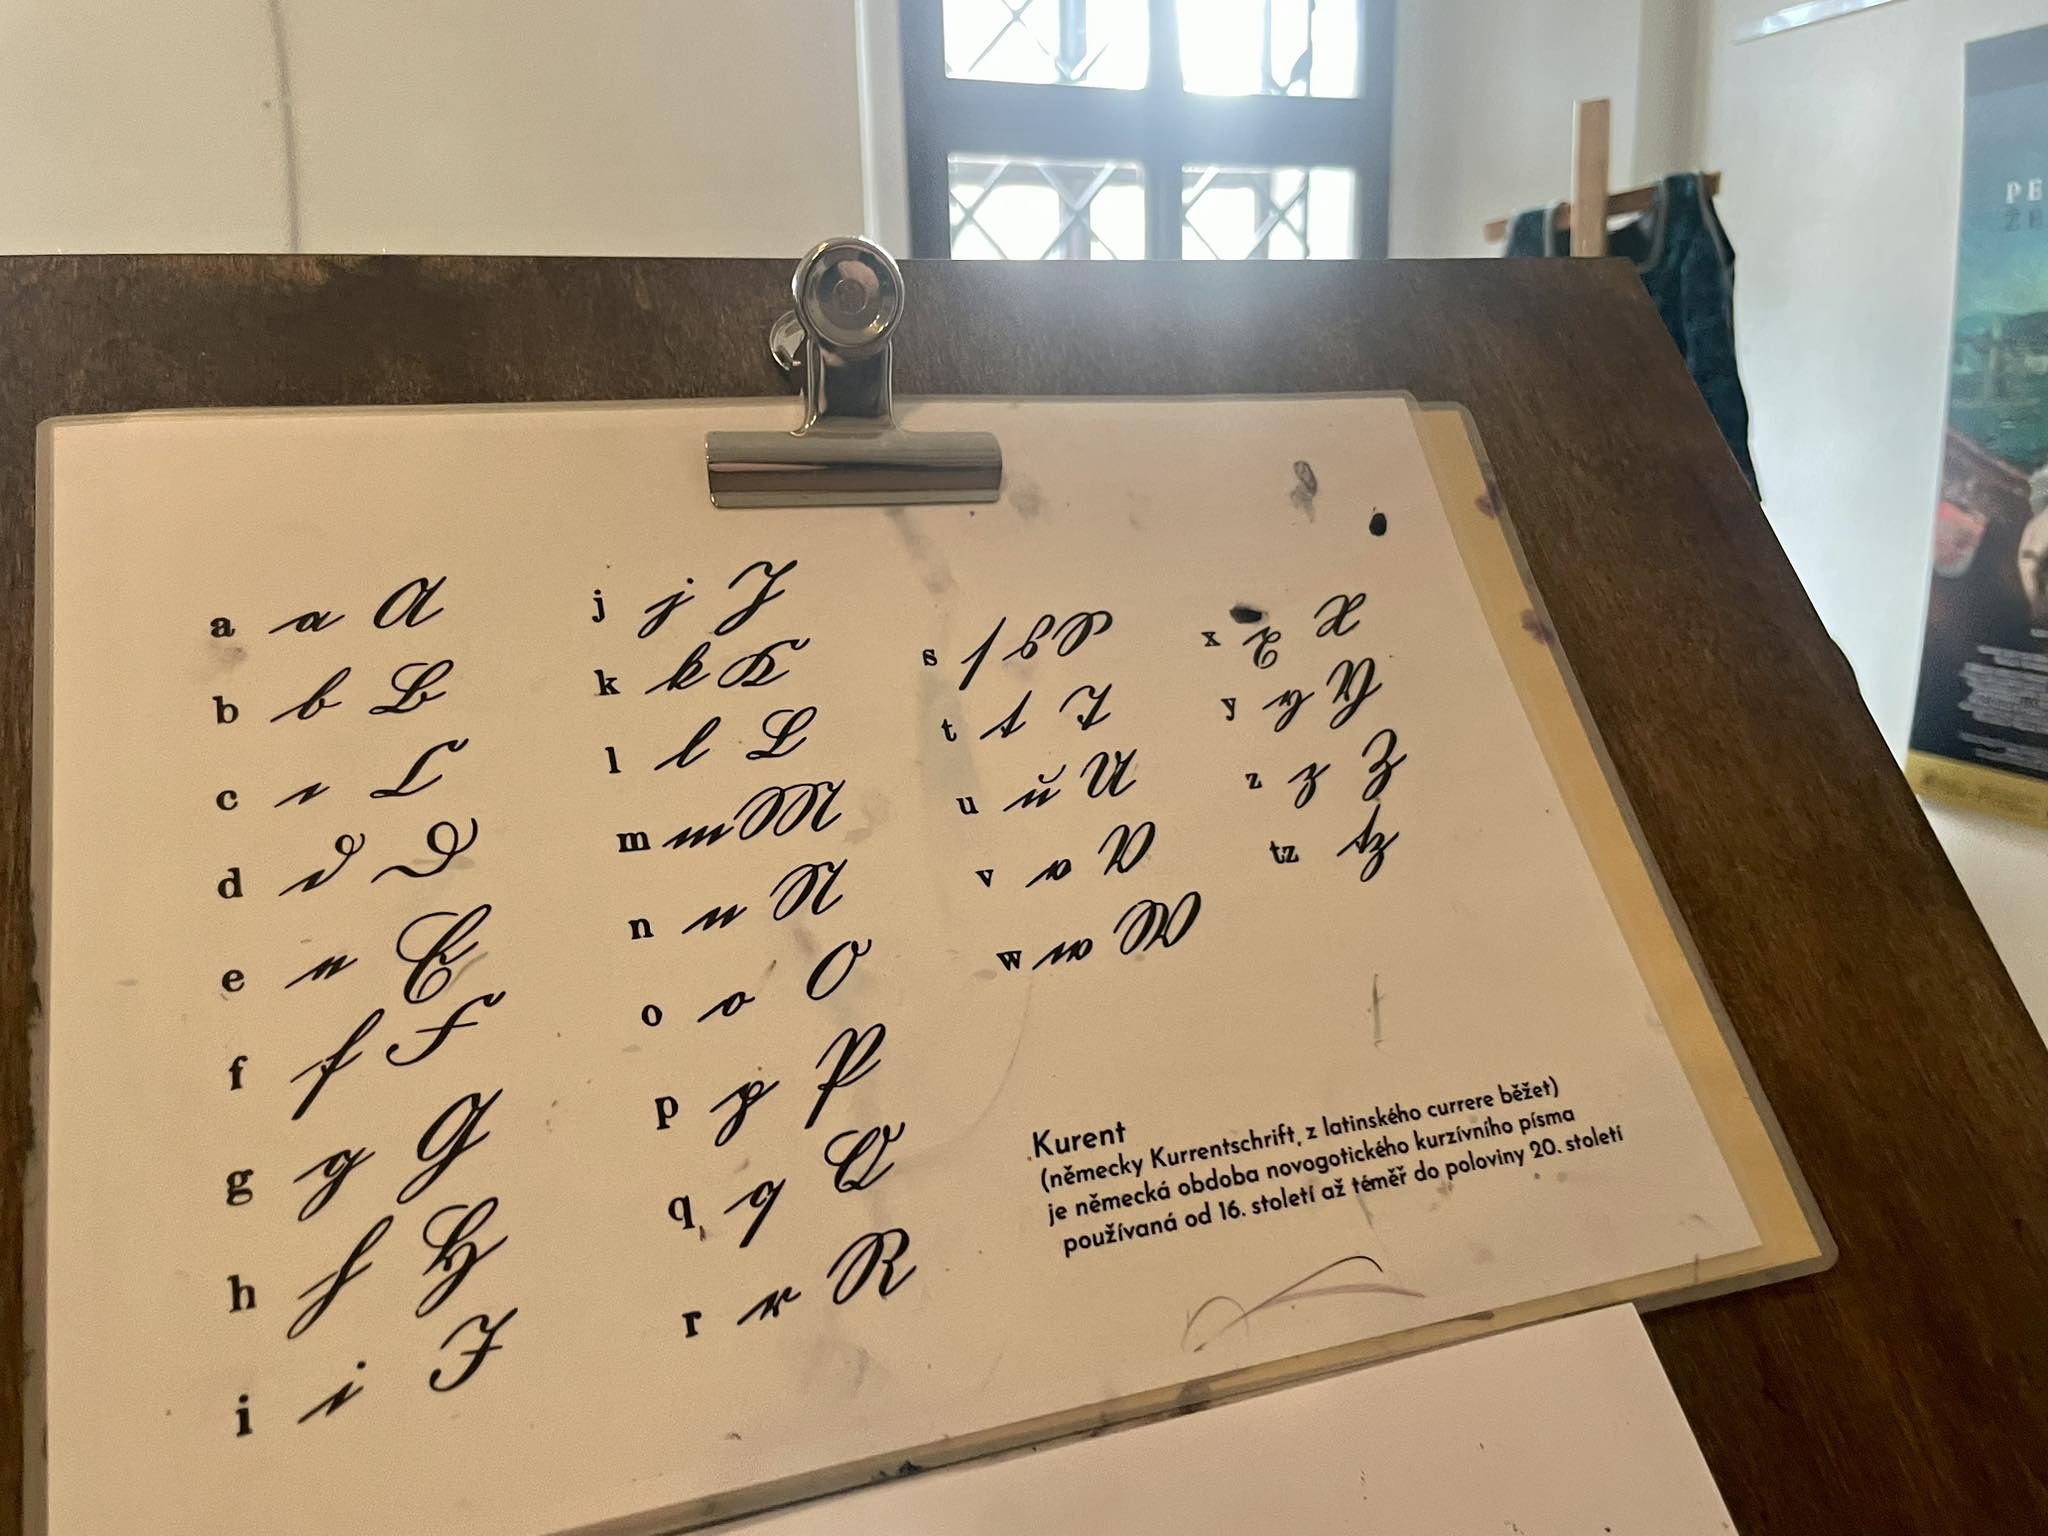 a a A
b b B
c c C
d d D
e e E
f f F
g g G
h h H
i i I
j j J
k k K
l l L
m m M
n n N
o o O
p p P
q q Q
r r R
s ſ s S
t t T
u u U
v v V
w w W
x x X
y y Y
z z Z
tz tz
Kurent
(německy Kurrentschrift, z latinského currere běžet)
je německá obdoba novogotického kurzívního písma
používaná od 16. století až téměř do poloviny 20. století